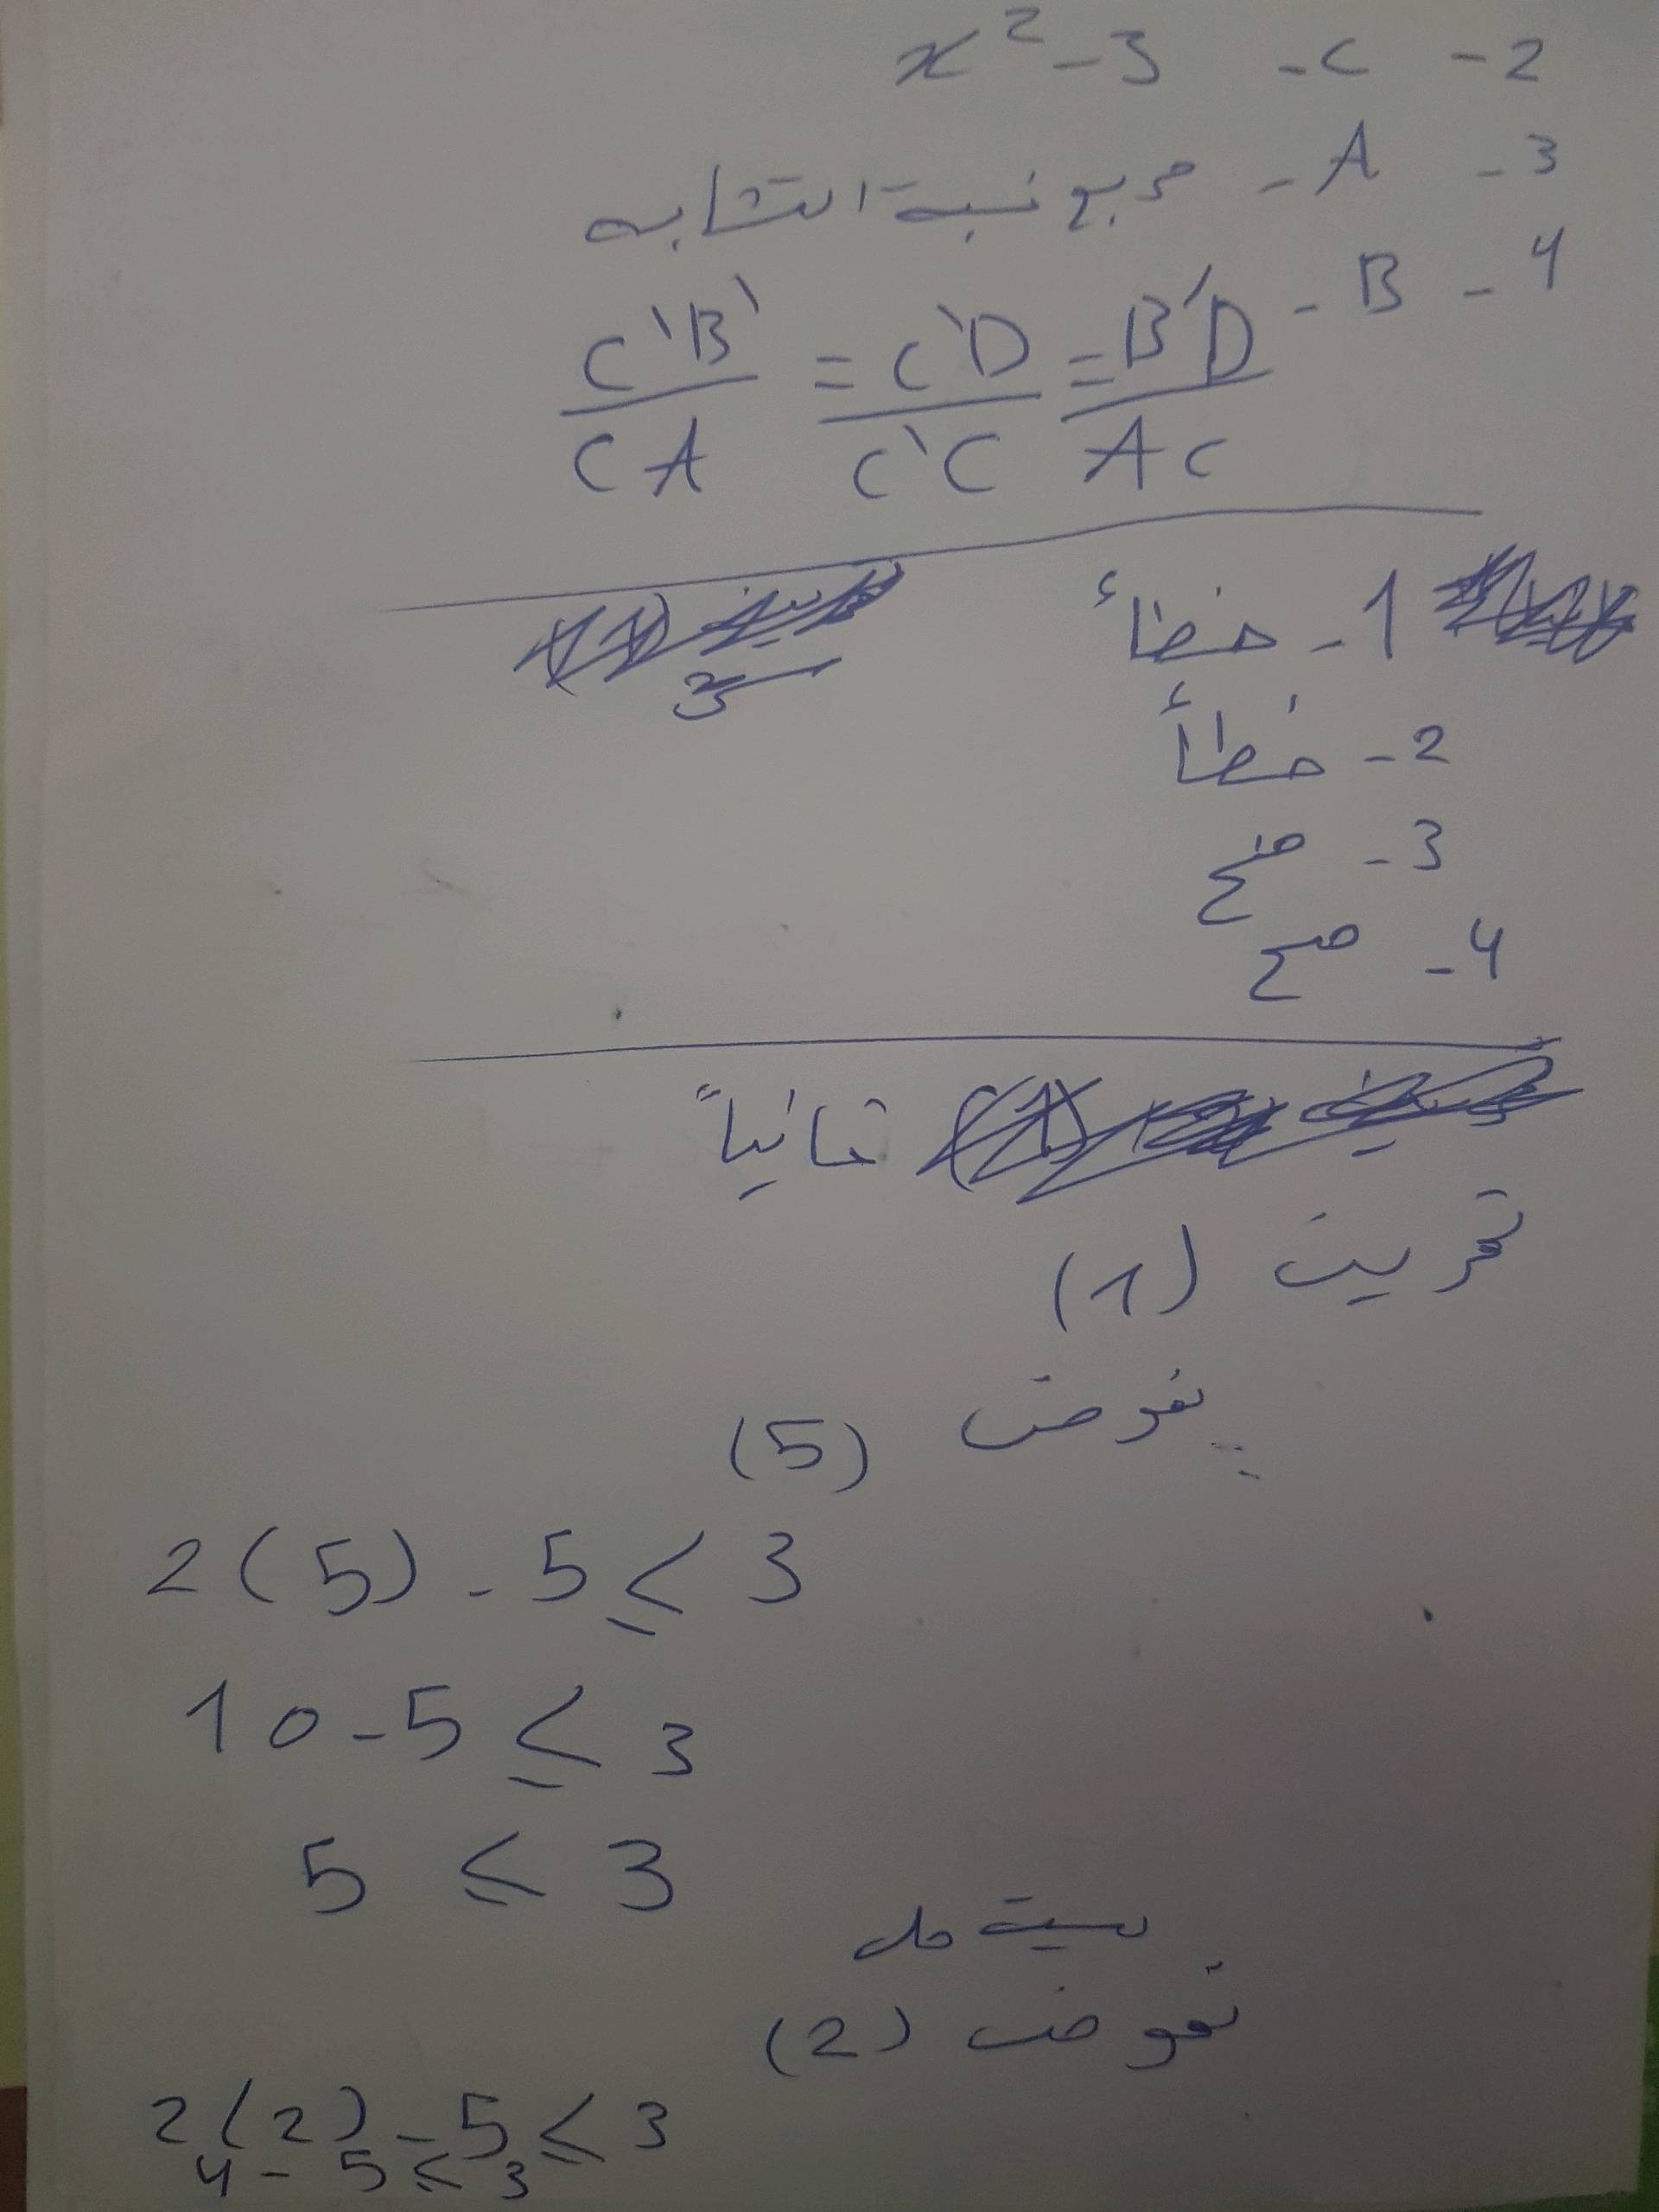 2 - C - x² - 3
3 - A - مربع نسبة التشابه
4 - B - C'B'/CA = C'D/C'C = B'D/AC
1 - خطأ
2 - خطأ
3 - صح
4 - صح
ثانياً
تمرين (1)
نعوض (5)
2(5) - 5 ≤ 3
10 - 5 ≤ 3
5 ≤ 3
ليست حل
نعوض (2)
2(2) - 5 ≤ 3
4 - 5 ≤ 3